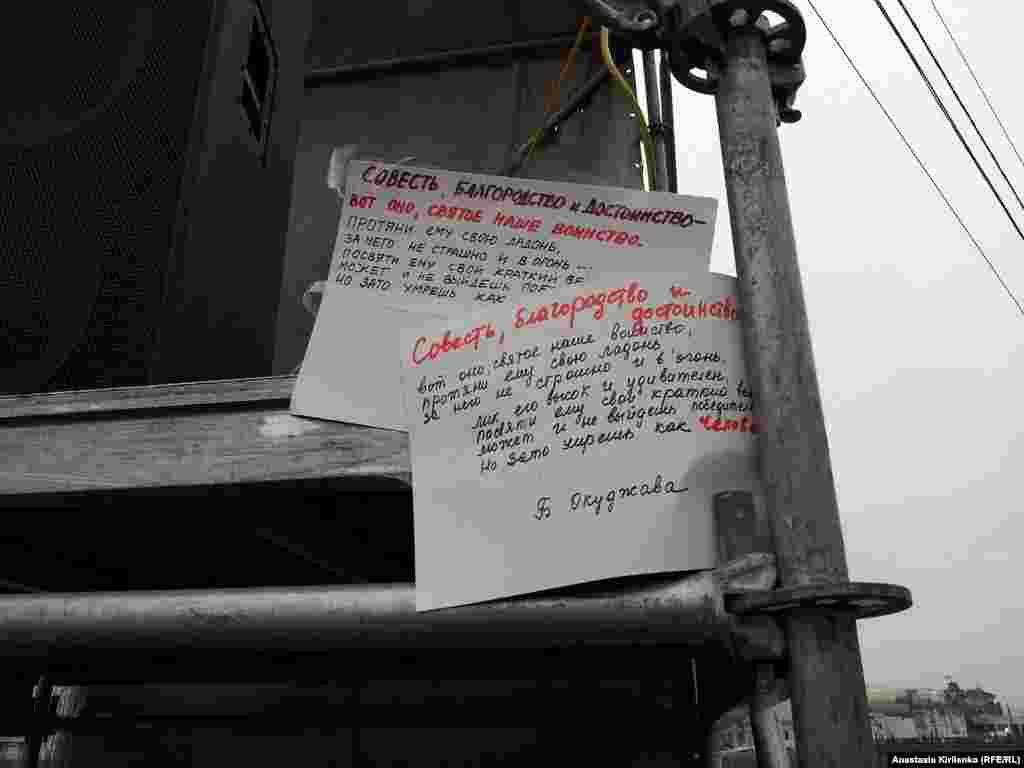 СОВЕСТЬ, БЛАГОРОДСТВО и ДОСТОИНСТВО –
ВОТ ОНО, СВЯТОЕ НАШЕ ВОИНСТВО.
ПРОТЯНИ ЕМУ СВОЮ ЛАДОНЬ,
ЗА НЕГО НЕ СТРАШНО И В ОГОНЬ...
ПОСВЯТИ ЕМУ СВОЙ КРАТКИЙ ВЕ
МОЖЕТ И НЕ ВЫЙДЕШЬ ПОБ
НО ЗАТО УМРЕШЬ КАК
Совесть, благородство и
достоинство
вот оно, святое наше воинство,
протяни ему свою ладонь
за него не страшно и в огонь.
лик его высок и удивителен,
посвяти ему свой краткий ве
может и не выйдешь победител
но зато умрешь как челове
Б Окуджава
Anastasia Kirilenko (RFE/RL)